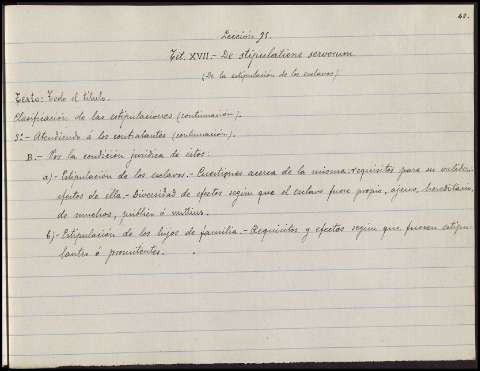 42.
Lección 91.
Tit. XVII.- De stipulatione servorum
(De la estipulación de los esclavos)
Texto: Todo el título.
Clasificación de las estipulaciones (continuación).
3º.- Atendiendo á los contratantes (continuación).
B.- Por la condición jurídica de estos.
a)- Estipulación de los esclavos.- Cuestiones acerca de la misma: requisitos para su validez:
efectos de ella.- Diversidad de efectos según que el esclavo fuere propio, ajeno, hereditario,
de muchos, público ó mutuus.
b)- Estipulación de los hijos de familia.- Requisitos y efectos según que fueren estipu-
lantes ó promitentes.